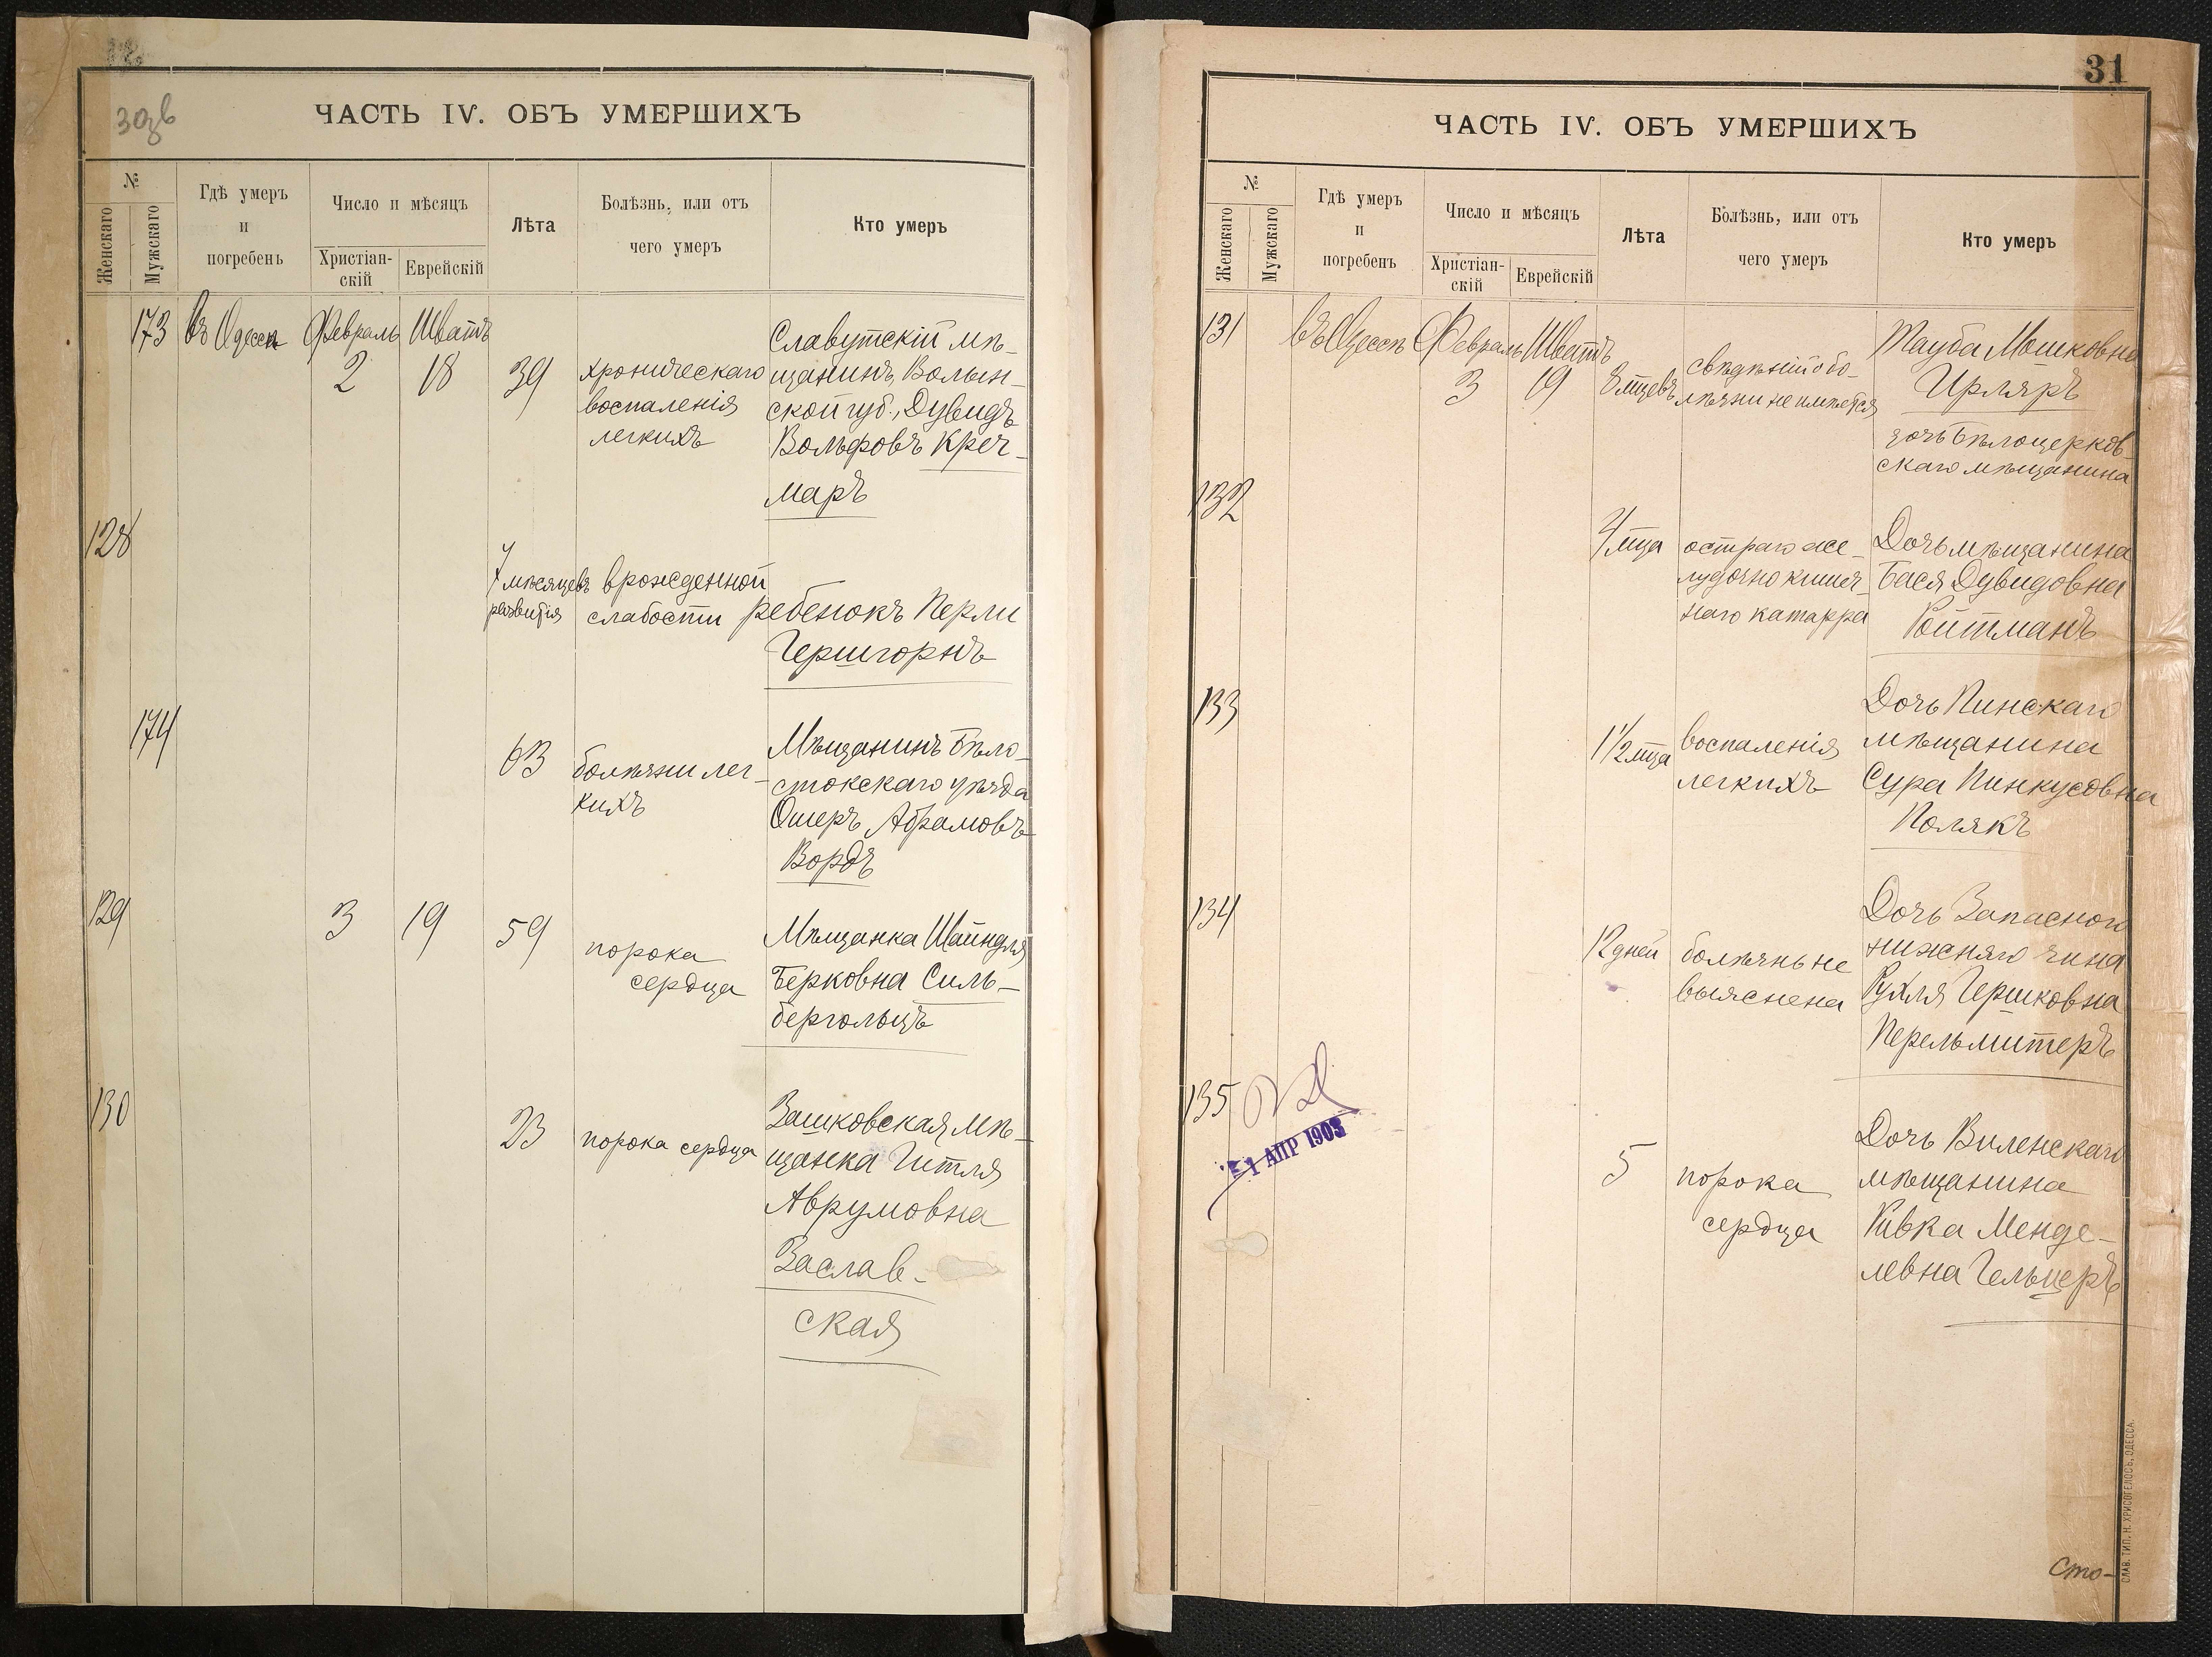 30зв
ЧАСТЬ IV. ОБЪ УМЕРШИХЪ
№
Женскаго
Мужскаго
Гдѣ умеръ
и
погребенъ
Число и мѣсяцъ
Христіан-
скій
Еврейскій
Лѣта
Болѣзнь, или отъ
чего умеръ
Кто умеръ
173 въ Одессѣ Февраль Шватъ
2 18 39
хроническаго
воспаленія
легкихъ
Славутскій мѣ-
щанинъ, Волын-
ской губ., Дувидъ
Вольфовъ Креч-
маръ
128
7 мѣсяцевъ
развитія
врожденной
слабости
ребенокъ Перли
Гершгорнъ
174
63
болѣзни лег-
кихъ
Мѣщанинъ Бѣло-
стокскаго уѣзда
Ошеръ Абрамовъ
Вордъ
129
3 19 59
порока
сердца
Мѣщанка Шайндля
Берковна Силь-
бергольцъ
130
23
порока сердца
Зашковская мѣ-
щанка Гитля
Аврумовна
Заслав-
ская
31
ЧАСТЬ IV. ОБЪ УМЕРШИХЪ
№
Женскаго
Мужскаго
Гдѣ умеръ
и
погребенъ
Число и мѣсяцъ
Христіан-
скій
Еврейскій
Лѣта
Болѣзнь, или отъ
чего умеръ
Кто умеръ
131 въ Одессѣ Февраль Шватъ
3 19 8 мцевъ
свѣдѣній о бо-
лѣзни не имѣется
Тауба Мошковна
Ирляръ
дочь Бѣлоцерков-
скаго мѣщанина
132
4 мца
остраго же-
лудочно кишеч-
наго катарра
Дочь мѣщанина
Бася Дувидовна
Ройтманъ
133
1 1/2 мца
воспаленія
легкихъ
Дочь Пинскаго
мѣщанина
Сура Пинкусовна
Полякъ
134
12 дней
болѣзнь не
выяснена
Дочь Запасного
нижняго чина
Рухля Гершковна
Перельмитеръ
135
1 АПР 1903
5
порока
сердца
Дочь Виленскаго
мѣщанина
Ривка Менде-
левна Гельцеръ
Сто-
СЛАВ. ТИП. Н. ХРИСОГЕЛОСЪ, ОДЕССА.